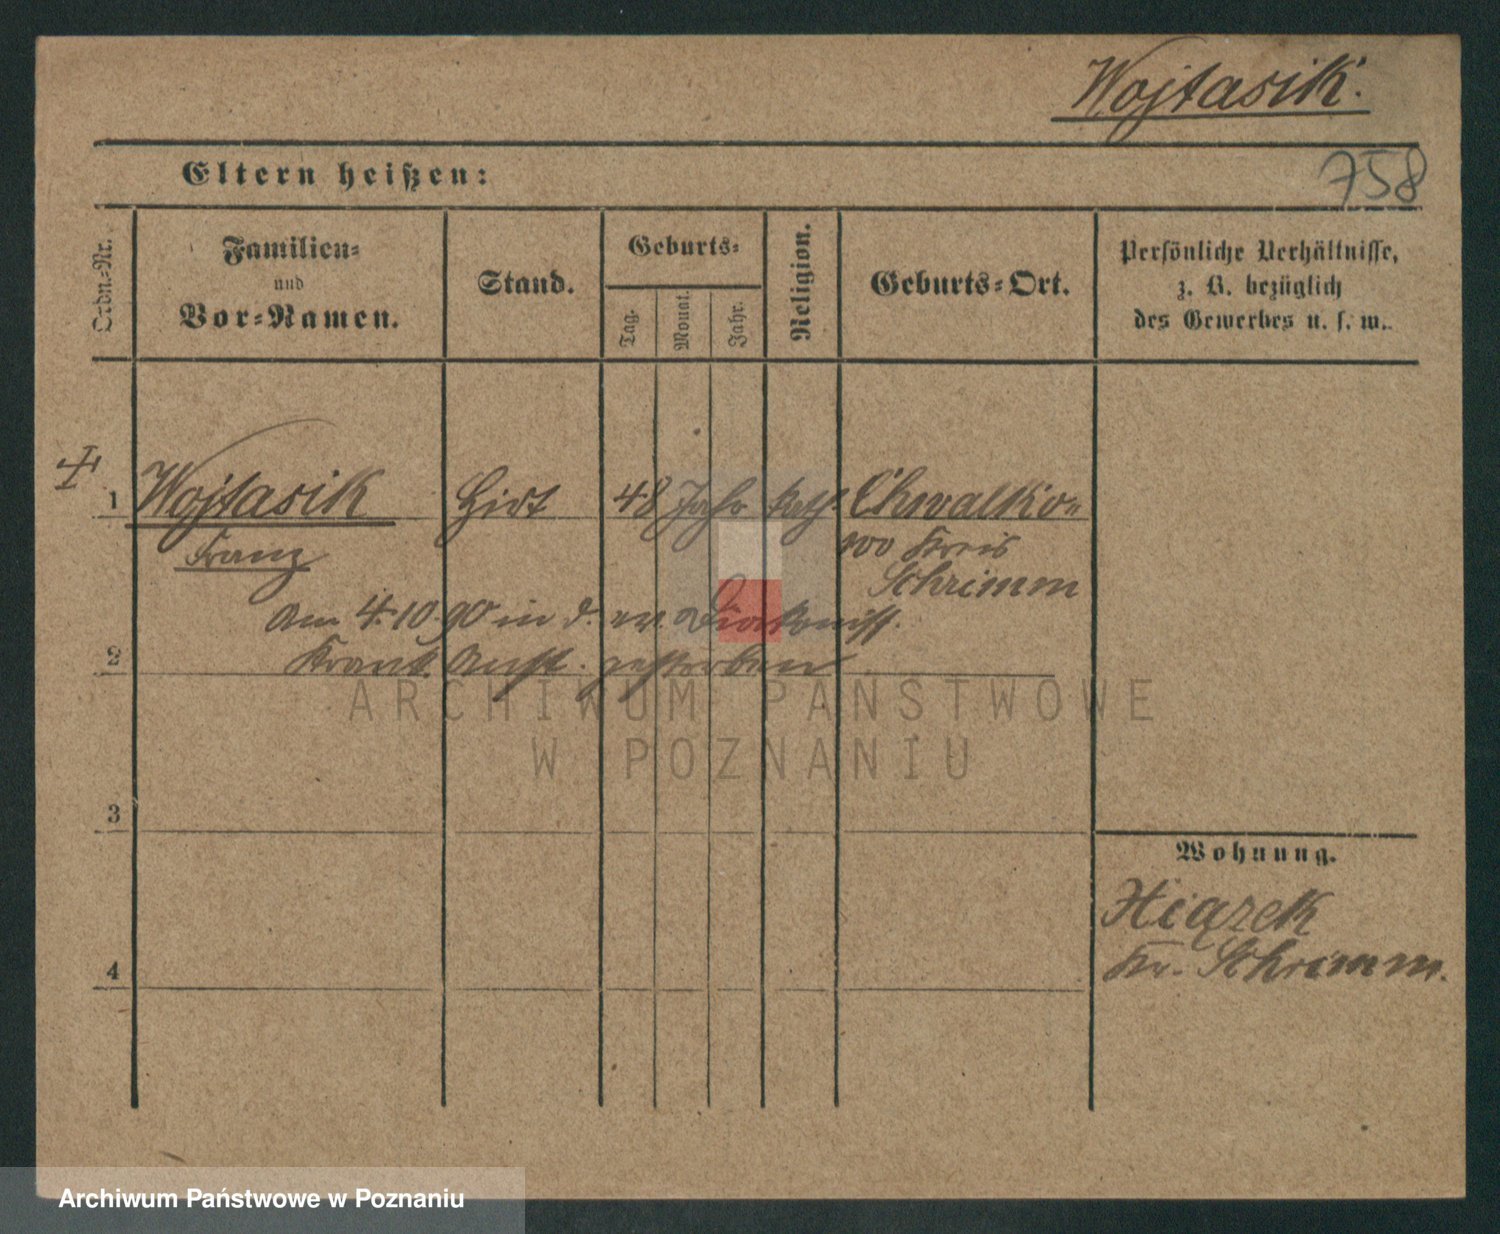 Wojtasik.
Eltern heißen:
758
Ordn.-Nr.
Familien-
und
Vor-Namen.
Stand.
Geburts-
Tag.
Monat.
Jahr.
Religion.
Geburts-Ort.
Persönliche Verhältnisse,
z. B. bezüglich
des Gewerbes u. s. w.
1 Wojtasik Hirt 48 Jahr kath. Chwalko-
Franz wo Kreis
Schrimm
Am 4.10.90 in d. ev. Diakoniss.
2 Krank. Anst. gestorben
ARCHIWUM PAŃSTWOWE
W POZNANIU
3
Wohnung.
Xiązek
4 Kr. Schrimm.
Archiwum Państwowe w Poznaniu